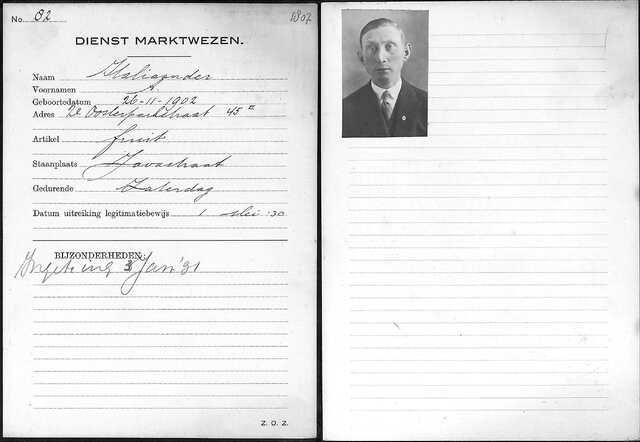 No. 82 1807
DIENST MARKTWEZEN.
Naam Italiaander
Voornamen A.
Geboortedatum 26-11-1902
Adres 2e Oosterparkstraat 45 II
Artikel fruit
Staanplaats Javastraat
Gedurende Zaterdag
Datum uitreiking legitimatiebewijs 1 Mei '30
BIJZONDERHEDEN:
3 Jan '31
Z. O. Z.